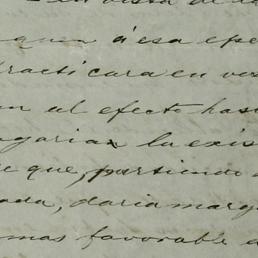 en vista de la
á esa epe
racticara en ves
al efecto has
la exis
e que, partiendo
ada, daria marg
mas favorable a